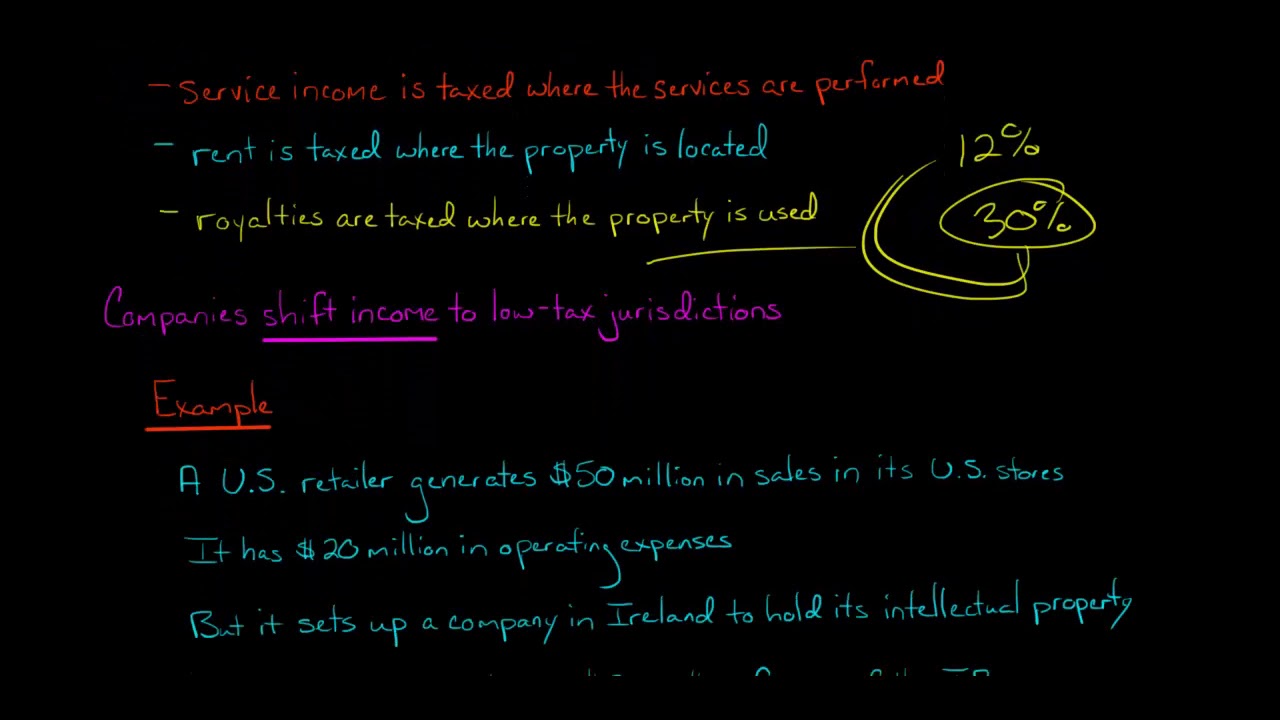 - Service income is taxed where the services are performed
- rent is taxed where the property is located
12%
- royalties are taxed where the property is used
30%
Companies shift income to low-tax jurisdictions
Example
A U.S. retailer generates $50 million in sales in its U.S. stores
It has $20 million in operating expenses
But it sets up a company in Ireland to hold its intellectual property